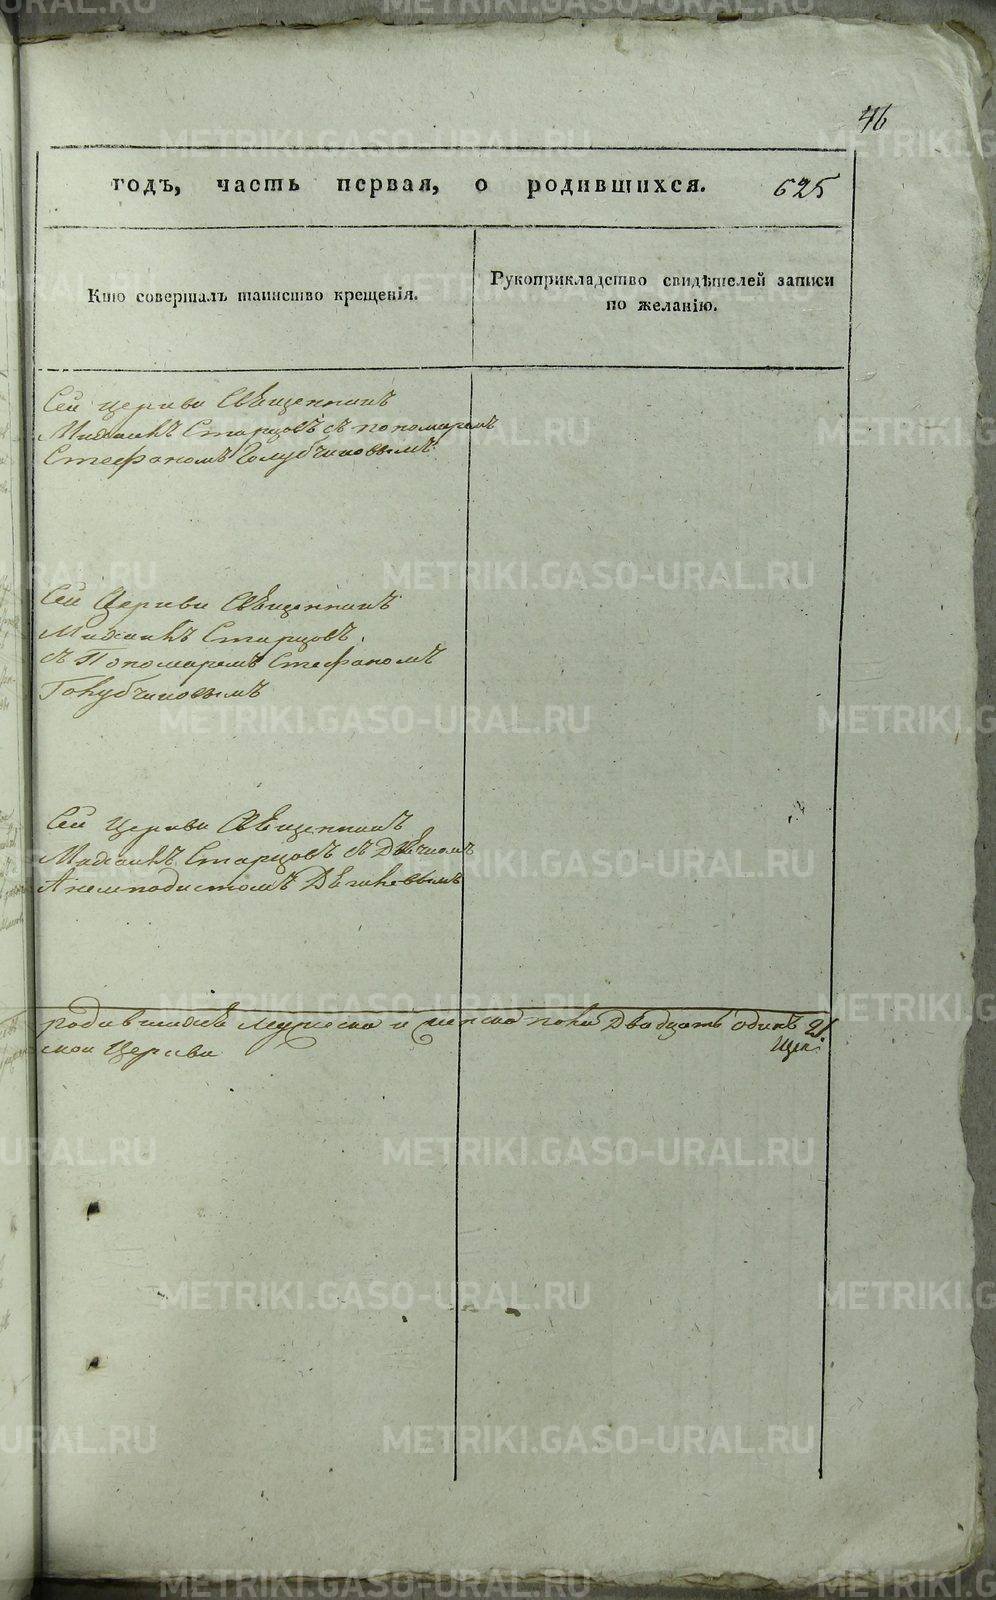 46
годъ, часть первая, о родившихся. 625
Кто совершалъ таинство крещенія.
Рукоприкладство свидѣтелей записи
по желанію.
Сей церкви Священникъ
Михаилъ Старцовъ съ пономаремъ
Стефаномъ Голубчиковымъ
Сей Церкви Священникъ
Михаилъ Старцовъ
съ Пономаремъ Стефаномъ
Голубчиковымъ
Сей Церкви Священникъ
Михаилъ Старцовъ съ Дьячкомъ
Анемподистомъ
родившихся мужеска и женска пола Двадцать одинъ 21
Церкви
METRIKI.GASO-URAL.RU